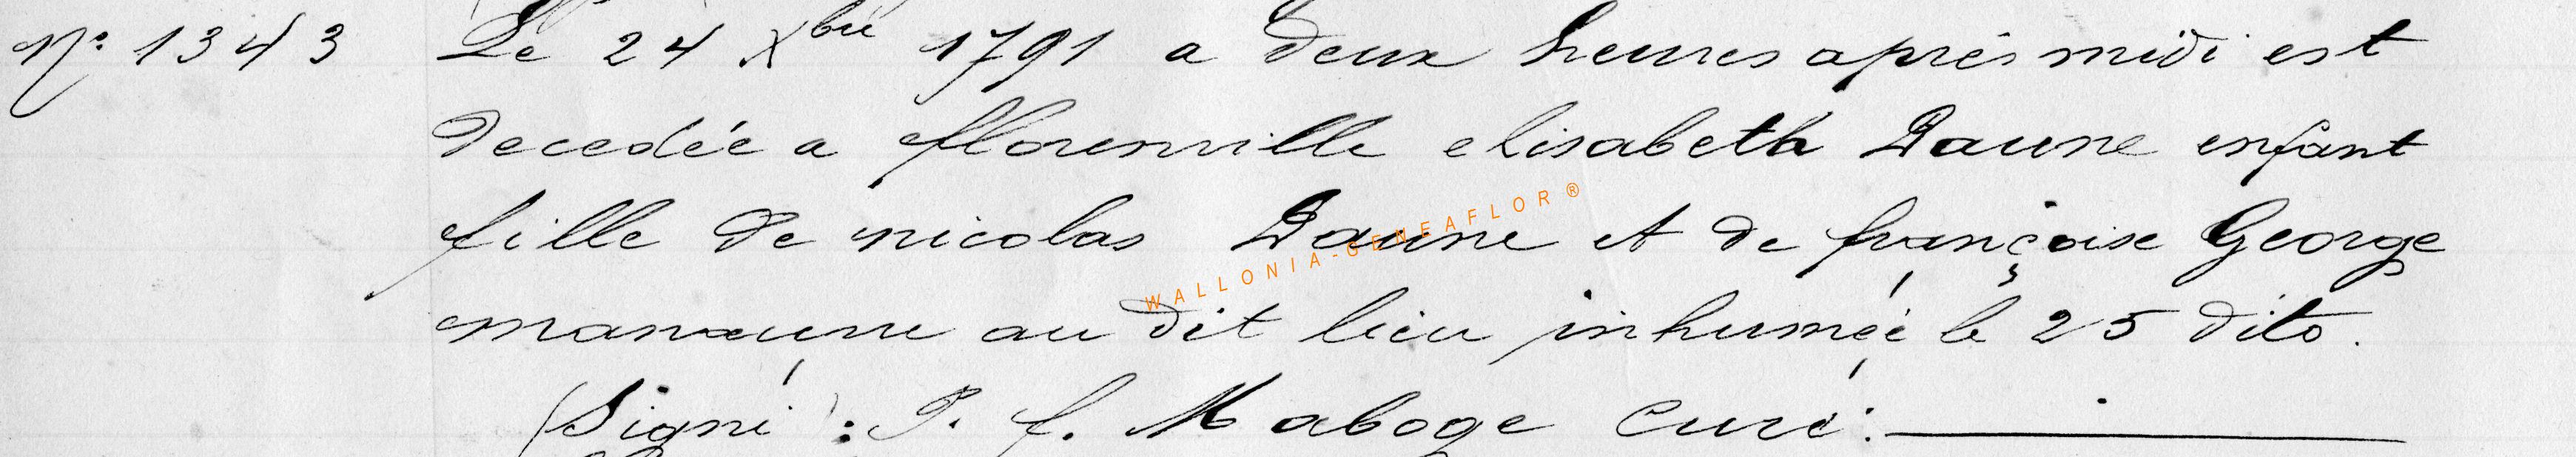 N° 1343 Le 24 Xbre 1791 a deux heures après midi est
decedée a florenville elisabeth Daune enfant
fille de nicolas Daune et de françoise George
manœuvre au dit lieu inhumée le 25 dito.
(Signé): P. f. Maboge Curé:
WALLONIA-GENEAFLOR ®